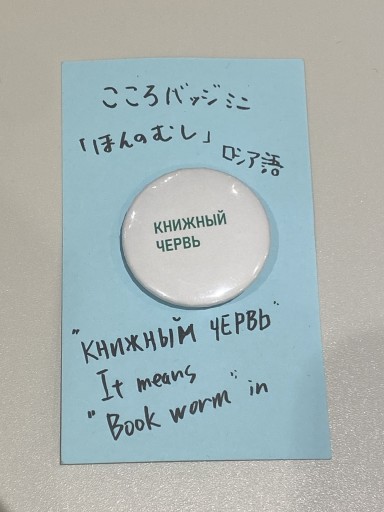 こころバッジミニ
「ほんのむし」
ロシア語
КНИЖНЫЙ
ЧЕРВЬ
"КНИЖНЫЙ ЧЕРВЬ"
It means
"Book worm" in